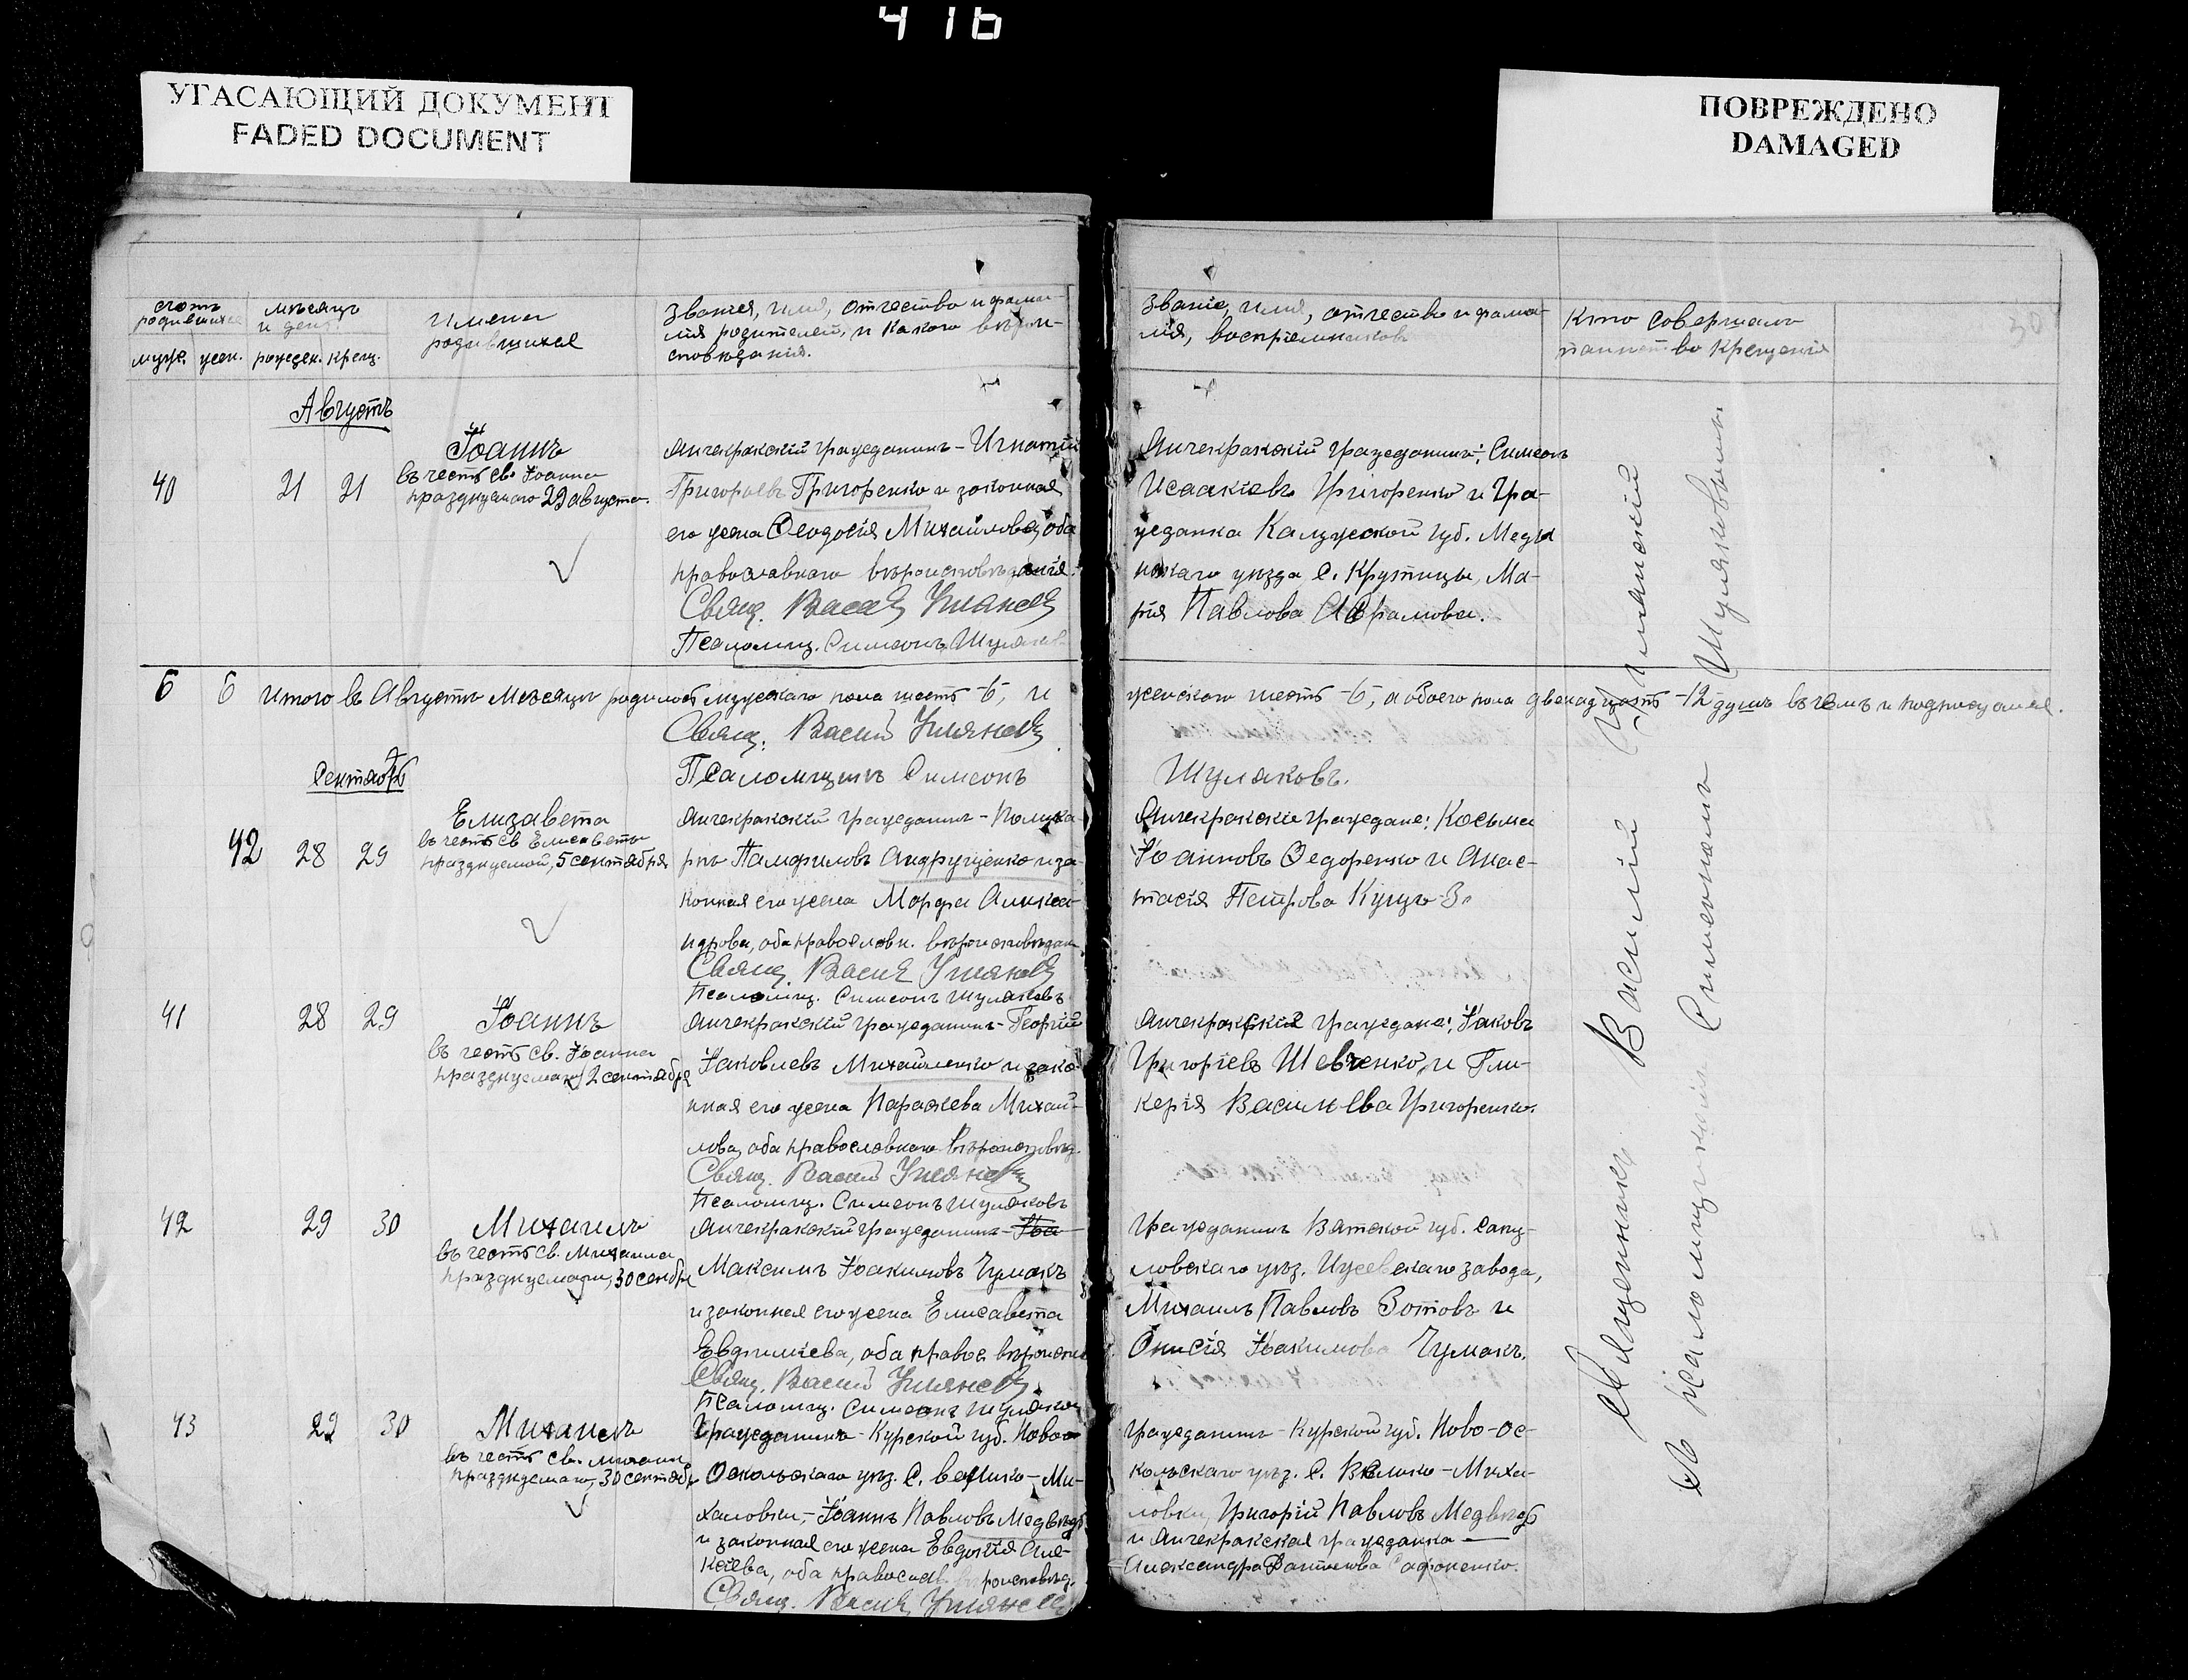 416
УГАСАЮЩИЙ ДОКУМЕНТ
FADED DOCUMENT
ПОВРЕЖДЕНО
DAMAGED
счетъ родившихся
муж. жен.
мѣсяцъ и день
рожден. крещ.
Имена родившихся
Званія, имя, отчество и фами-
лія родителей, и какого вѣрои-
сповѣданія.
Званіе, имя, отчество и фами-
лія, воспріемниковъ
Кто совершалъ
таинство крещенія
30
Августъ
40 21 21
Іоаннъ
въ честь св. Іоанна
празднуемаго 29 августа.
Янчекракскій гражданинъ - Игнатій
Григорьевъ Григоренко и законная
его жена Феодосія Михайлова, оба
православнаго вѣроисповѣданія.
Свящ. Васил
Псаломщ. Симеонъ Шуляковъ
Янчекракскій гражданинъ: Симеонъ
Исаакіевъ Григоренко и Гра-
жданка Калужской губ. Меды
нскаго уѣзда, с. Крутицы, Ма-
рія Павлова Аврамова.
6 6 Итого въ Августѣ мѣсяцѣ родилось мужскаго пола шесть -6, и
женскаго шесть -6, а обоего пола двенадцать -12 душъ въ чемъ и подписуемся.
Свящ. Василій
Псаломщикъ Симеонъ
Шуляковъ.
Сентябрь
42 28 29
Елизавета
въ честь св. Елисаветы
празднуемой, 5 сентября
Янчекракскій гражданинъ - Полика-
рпъ Памфиловъ Андрущенко и за-
конная его жена Марфа Алекса-
ндрова, оба православн. вѣроисповѣдан.
Свящ. Васил
Псаломщ. Симеонъ Шуляковъ
Янчекракскіе граждане: Косьма
Іоанновъ Федоренко и Анас-
тасія Петрова Куцъ
41 28 29
Іоаннъ
въ честь св. Іоанна
празднуемаго 2 сентября
Янчекракскій гражданинъ - Георгій
Іаковлевъ Михайленко и зако-
нная его жена Параскева Михай-
лова, оба православнаго вѣроисповѣд.
Свящ. Василій
Псаломщ. Симеонъ Шуляковъ
Янчекракскіе граждане: Іаковъ
Григоріевъ Шевченко, и Гли-
керія Васильева Григоренко.
42 29 30
Михаилъ
въ честь св. Михаила
празднуемаго, 30 сентбря
Янчекракскій гражданинъ - Іоа
Максимъ Іоакимовъ Чумакъ
и законная его жена Елисавета
Евфиміева, оба правос. вѣроиспо
Свящ. Василій
Псаломщ. Симеонъ Шуляковъ
Гражданинъ Вятской губ. Сапу-
ловскаго уѣз. Ижевскаго завода,
Михаилъ Павловъ Зотовъ и
Онисія Іоакимова Чумакъ.
43 29 30
Михаилъ
въ честь св. Михаила
празднуемаго, 30 сентябр
Гражданинъ - Курской губ. Ново-
Оскольскаго уѣз. С. Велико-Ми-
халовки, - Іоаннъ Павловъ Медвѣдь
и законная его жена Евдокія Але-
ксѣева, оба православ. вѣроисповѣд.
Свящ. Васил
Гражданинъ - Курской губ. Ново-Ос-
кольскаго уѣз. С. Велико-Миха-
ловки, Григорій Павловъ Медвѣдь
и Янчекракская гражданка
Александра Сафоненко.
Священникъ Василій
Съ псаломщикомъ Симеономъ Шуляковымъ